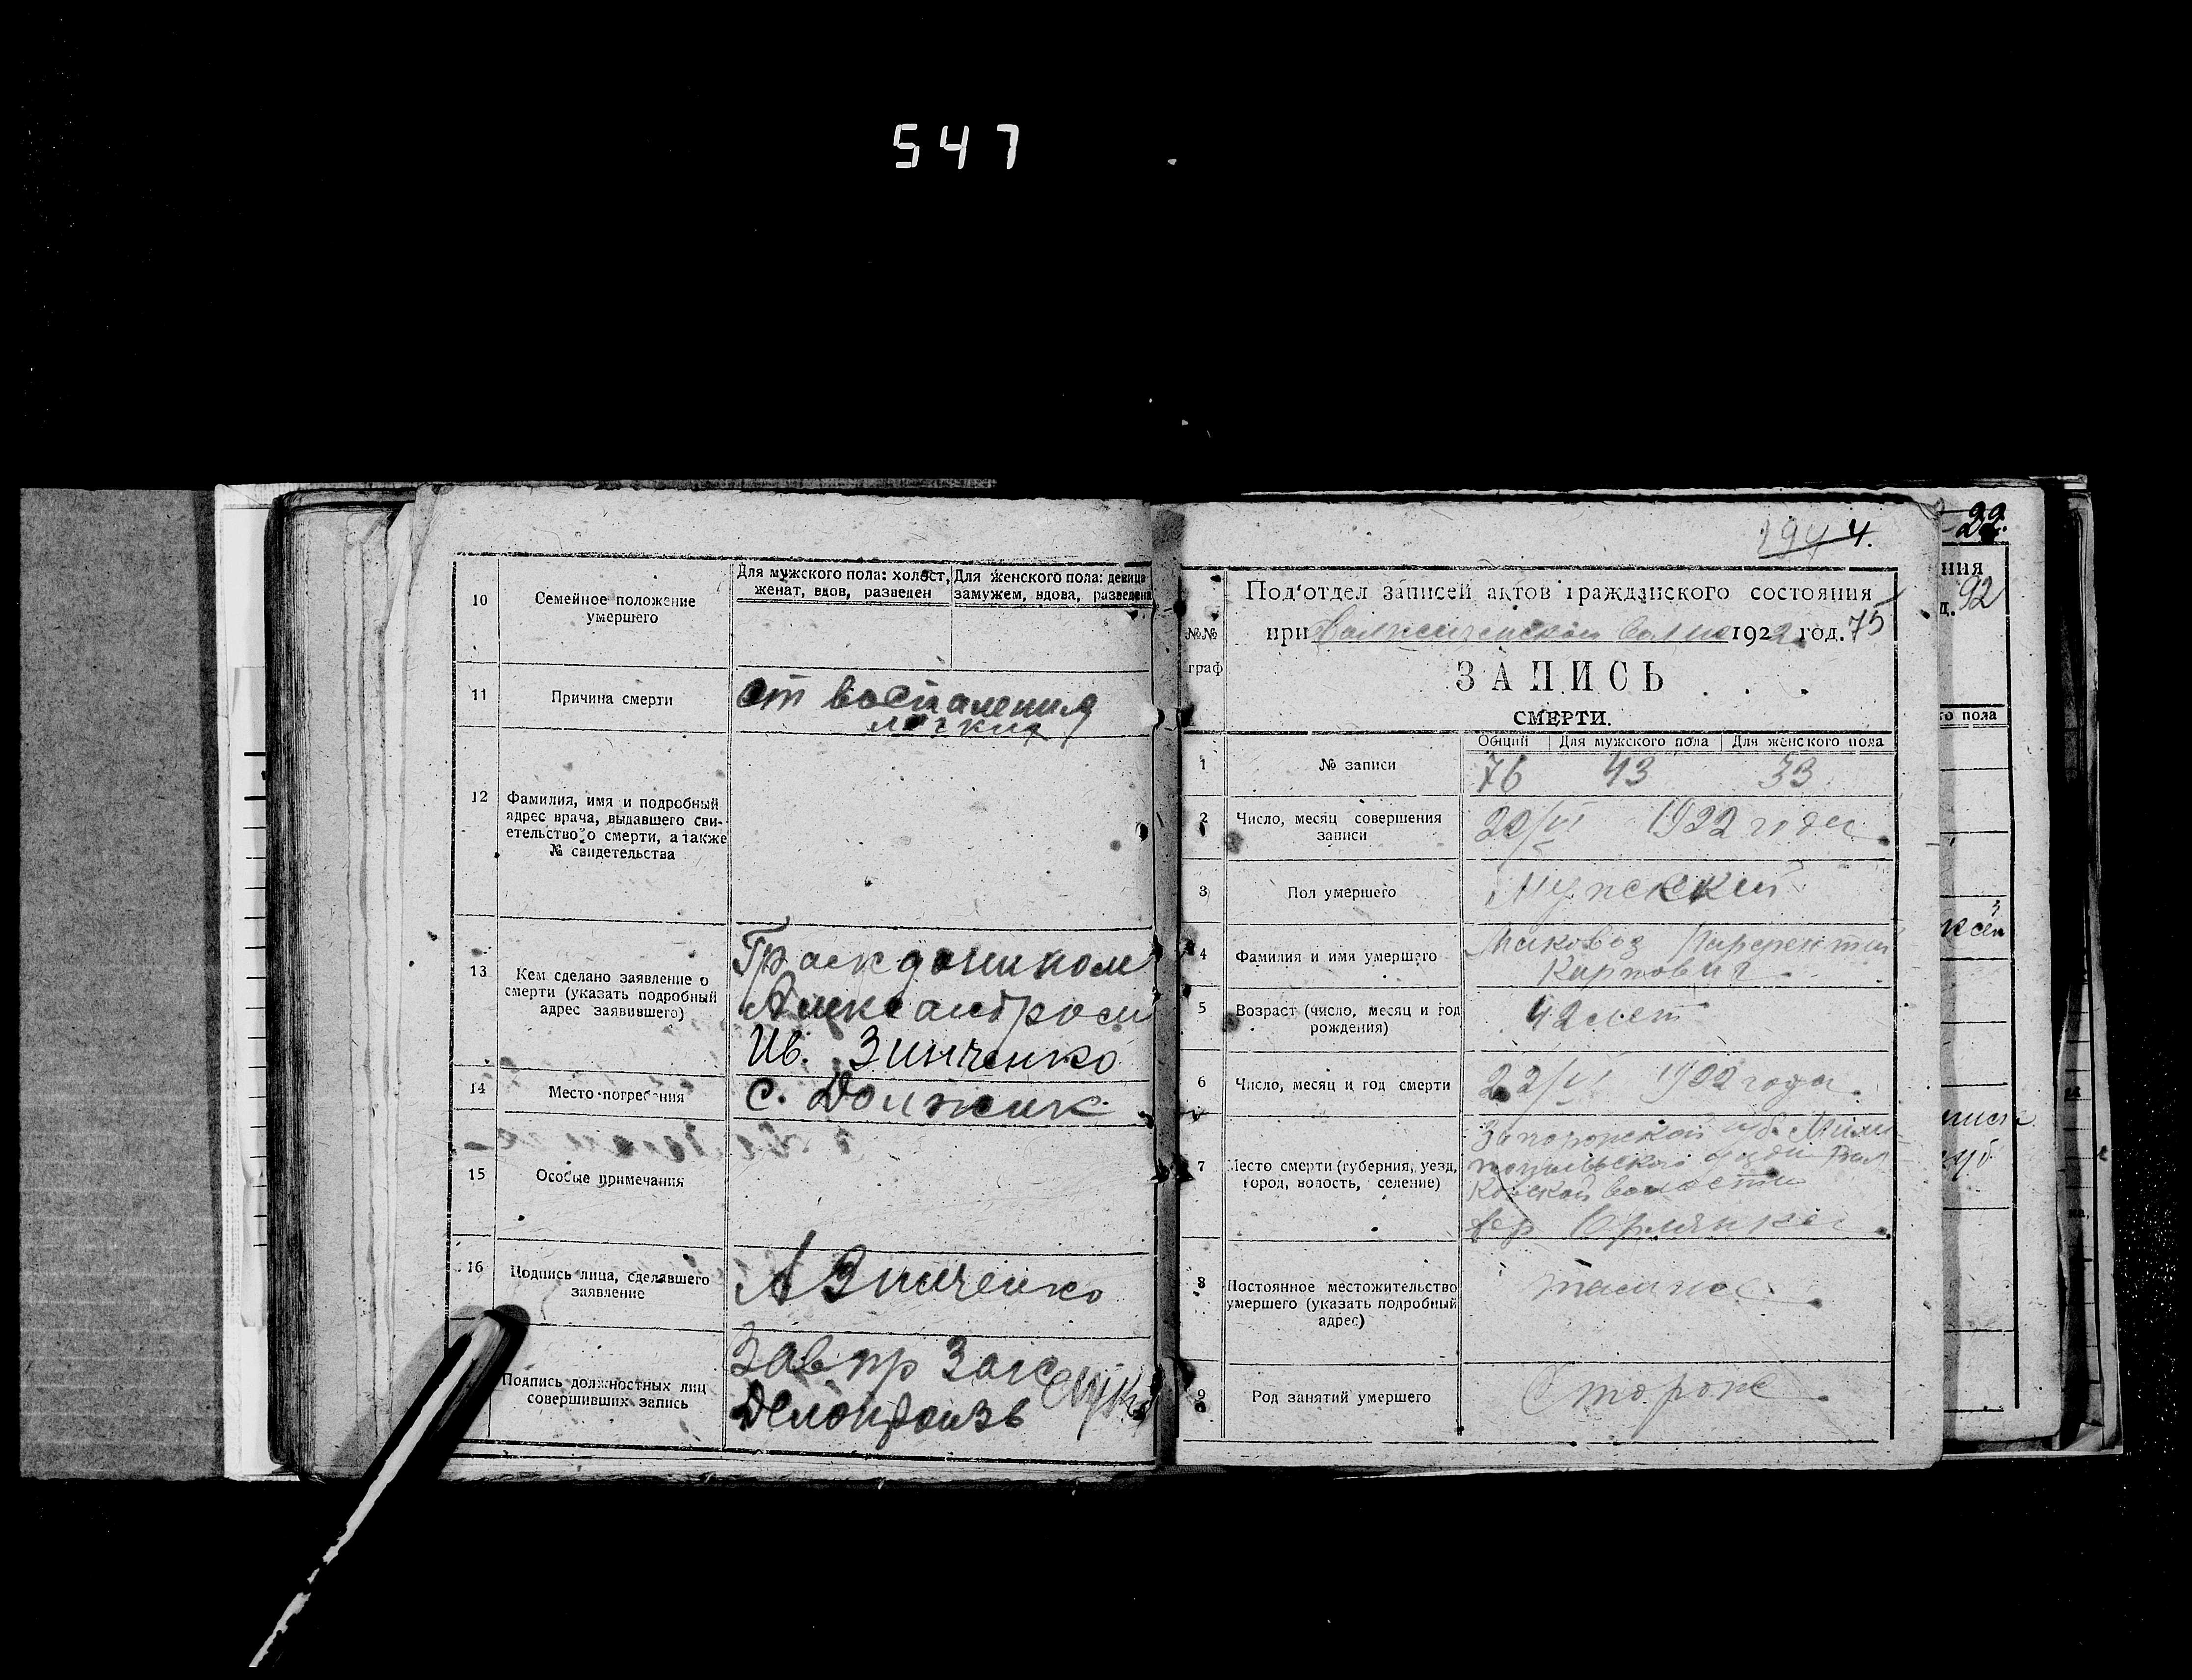 547
10
Семейное положение
умершего
Для мужского пола: холост,
женат, вдов, разведен
Для женского пола: девица
замужем, вдова, разведена
11
Причина смерти
от воспаления
легких
12
Фамилия, имя и подробный
адрес врача, выдавшего сви-
етельство о смерти, а также
№ свидетельства
13
Кем сделано заявление о
смерти (указать подробный
адрес заявившего)
Гражданином
Александром
Ив. Зинченко
14
Место погребения
с. Должик
15
Особые примечания
16
Подпись лица, сделавшего
заявление
А Зинченко
Подпись должностных лиц
совершивших запись
Зав пр Загс
Делопроизв
294 4.
Под'отдел записей актов гражданского состояния
при 1922 год. 75
№№
граф
ЗАПИСЬ
СМЕРТИ.
Общий Для мужского пола Для женского пола
1
№ записи
76 43 33
2
Число, месяц совершения
записи
22/VI 1922 года
3
Пол умершего
Мужский
4
Фамилия и имя умершего
Маковоз Парфентий
Карпович
5
Возраст (число, месяц и год
рождения)
42 лет
6
Число, месяц и год смерти
22/VI 1922 года.
7
Место смерти (губерния, уезд,
город, волость, селение)
Запорожской губ. Мели
топольского уезда
волости
Орлянка
8
Постоянное местожительство
умершего (указать подробный
адрес)
тамже
9
Род занятий умершего
Сторож
22.
ния
д. 92
го пола